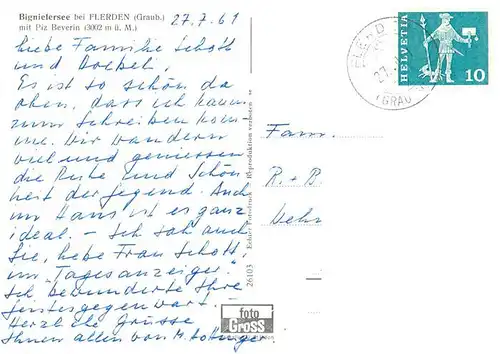 Bignielersee bei FLERDEN (Graub.)
mit Piz Beverin (3002 m ü. M.)
27.7.61
Liebe Familie Schott
und
Es ist so schön da
oben, dass ich kaum
zum Schreiben kom
me. Wir wandern
viel und geniessen
die Ruhe und Schön
heit der Gegend. Auch
im Haus ist es ganz
ideal. – Ich sah auch
Sie, liebe Frau Schott,
im "Tagesanzeiger".
Ich bewunderte Ihre
Geistesgegenwart. –
Herzliche Grüsse
Ihnen allen von
Reproduktion verboten
26103
foto
GROSS
HELVETIA
10
(GRAU
Fam.
R. + B.